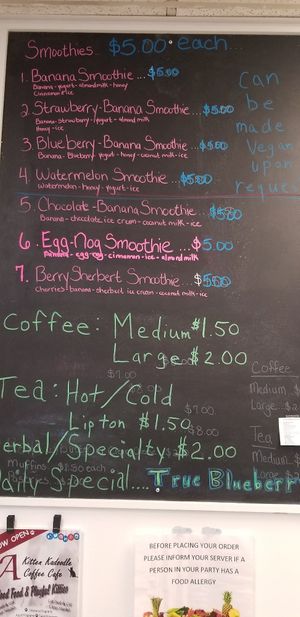 Smoothies... $5.00 each...
1. Banana Smoothie...$5.00
Banana - yogurt - almond milk - honey
Cinnamon & ice
2. Strawberry-Banana Smoothie...$5.00
Banana - Strawberry - yogurt - almond milk
Honey - ice
3. Blueberry-Banana Smoothie...$5.00
Banana - Blueberry - yogurt - honey - coconut milk - ice
4. Watermelon Smoothie...$5.00
Watermelon - Honey - yogurt - ice
5. Chocolate-Banana Smoothie...$5.00
Banana - chocolate ice cream - coconut milk - ice
6. Egg-Nog Smoothie...$5.00
Banana - egg - cinnamon - ice - almond milk
7. Berry Sherbert Smoothie...$5.00
Cherries - banana - sherbert ice cream - coconut milk - ice
Can
be
made
Vegan
upon
reque
Coffee: Medium $1.50
Large $2.00
$7.00
Tea: Hot/Cold
Lipton $1.50
$7.00
erbal/Specialty $2.00
$8.00
muffins $1.50 each
Daily Special.... True Blueberr
Coffee
Medium
Large
Tea
Medium
Large
OW OPEN
Kitten Kadoodle
Coffee Cafe
Good Food & Playful Kitties
BEFORE PLACING YOUR ORDER
PLEASE INFORM YOUR SERVER IF A
PERSON IN YOUR PARTY HAS A
FOOD ALLERGY